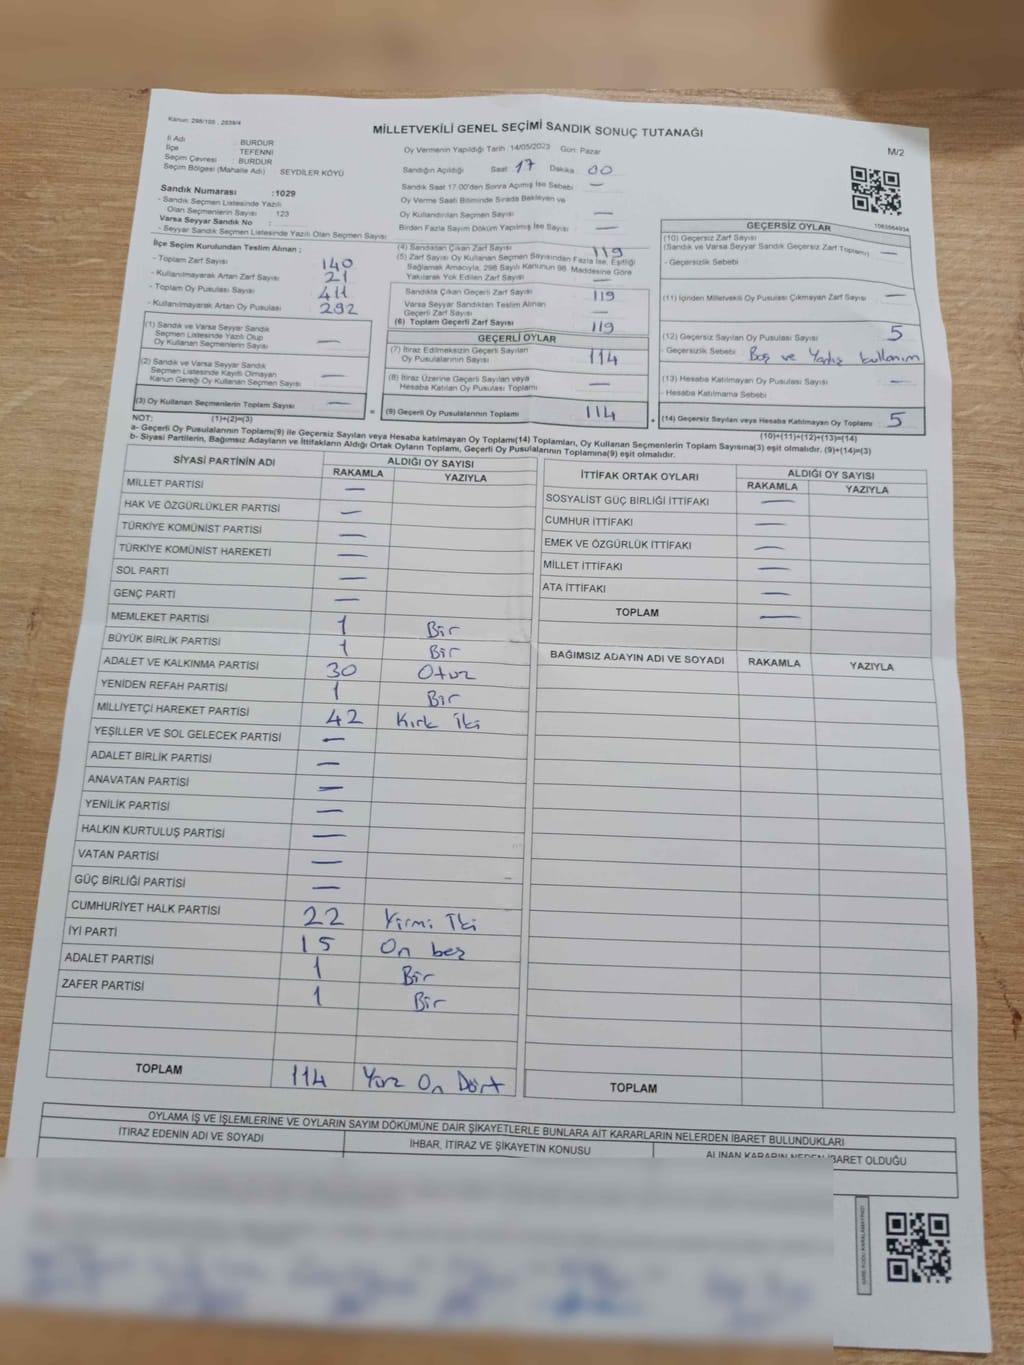 Kanun: 298/105 , 2839/4
MİLLETVEKİLİ GENEL SEÇİMİ SANDIK SONUÇ TUTANAĞI
M/2
İl Adı : BURDUR
İlçe : TEFENNİ
Seçim Çevresi : BURDUR
Seçim Bölgesi (Mahalle Adı) : SEYDİLER KÖYÜ
Sandık Numarası :1029
- Sandık Seçmen Listesinde Yazılı
Olan Seçmenlerin Sayısı : 123
Varsa Seyyar Sandık No :
- Seyyar Sandık Seçmen Listesinde Yazılı Olan Seçmen Sayısı
Oy Vermenin Yapıldığı Tarih :14/05/2023 Gün: Pazar
Sandığın Açıldığı Saat 17 Dakika 00
Sandık Saat 17.00'den Sonra Açılmış İse Sebebi —
Oy Verme Saati Bitiminde Sırada Bekleyen ve
Oy Kullandırılan Seçmen Sayısı —
Birden Fazla Sayım Döküm Yapılmış İse Sayısı —
1083564934
İlçe Seçim Kurulundan Teslim Alınan ;
- Toplam Zarf Sayısı 140
- Kullanılmayarak Artan Zarf Sayısı 21
- Toplam Oy Pusulası Sayısı 411
- Kullanılmayarak Artan Oy Pusulası 292
(1) Sandık ve Varsa Seyyar Sandık
Seçmen Listesinde Yazılı Olup
Oy Kullanan Seçmenlerin Sayısı —
(2) Sandık ve Varsa Seyyar Sandık
Seçmen Listesinde Kayıtlı Olmayan
Kanun Gereği Oy Kullanan Seçmen Sayısı —
(3) Oy Kullanan Seçmenlerin Toplam Sayısı —
(1)+(2)=(3)
(4) Sandıktan Çıkan Zarf Sayısı 119
(5) Zarf Sayısı Oy Kullanan Seçmen Sayısından Fazla İse, Eşitliği
Sağlamak Amacıyla, 298 Sayılı Kanunun 98. Maddesine Göre
Yakılarak Yok Edilen Zarf Sayısı —
Sandıkta Çıkan Geçerli Zarf Sayısı 119
Varsa Seyyar Sandıktan Teslim Alınan
Geçerli Zarf Sayısı —
(6) Toplam Geçerli Zarf Sayısı 119
GEÇERLİ OYLAR
(7) İtiraz Edilmeksizin Geçerli Sayılan
Oy Pusulalarının Sayısı 114
(8) İtiraz Üzerine Geçerli Sayılan veya
Hesaba Katılan Oy Pusulası Toplamı —
= (9) Geçerli Oy Pusulalarının Toplamı 114
GEÇERSİZ OYLAR
(10) Geçersiz Zarf Sayısı
(Sandık ve Varsa Seyyar Sandık Geçersiz Zarf Toplamı) —
- Geçersizlik Sebebi
(11) İçinden Milletvekili Oy Pusulası Çıkmayan Zarf Sayısı —
(12) Geçersiz Sayılan Oy Pusulası Sayısı 5
- Geçersizlik Sebebi Boş ve Yanlış kullanım
(13) Hesaba Katılmayan Oy Pusulası Sayısı —
- Hesaba Katılmama Sebebi
+ (14) Geçersiz Sayılan veya Hesaba Katılmayan Oy Toplamı 5
(10)+(11)+(12)+(13)=(14)
NOT:
a- Geçerli Oy Pusulalarının Toplamı(9) ile Geçersiz Sayılan veya Hesaba katılmayan Oy Toplamı(14) Toplamları, Oy Kullanan Seçmenlerin Toplam Sayısına(3) eşit olmalıdır. (9)+(14)=(3)
b- Siyasi Partilerin, Bağımsız Adayların ve İttifakların Aldığı Ortak Oyların Toplamı, Geçerli Oy Pusulalarının Toplamına(9) eşit olmalıdır.
SİYASİ PARTİNİN ADI ALDIĞI OY SAYISI
RAKAMLA YAZIYLA
MİLLET PARTİSİ —
HAK VE ÖZGÜRLÜKLER PARTİSİ —
TÜRKİYE KOMÜNİST PARTİSİ —
TÜRKİYE KOMÜNİST HAREKETİ —
SOL PARTİ —
GENÇ PARTİ —
MEMLEKET PARTİSİ 1 Bir
BÜYÜK BİRLİK PARTİSİ 1 Bir
ADALET VE KALKINMA PARTİSİ 30 Otuz
YENİDEN REFAH PARTİSİ 1 Bir
MİLLİYETÇİ HAREKET PARTİSİ 42 Kırk İki
YEŞİLLER VE SOL GELECEK PARTİSİ —
ADALET BİRLİK PARTİSİ —
ANAVATAN PARTİSİ —
YENİLİK PARTİSİ —
HALKIN KURTULUŞ PARTİSİ —
VATAN PARTİSİ —
GÜÇ BİRLİĞİ PARTİSİ —
CUMHURİYET HALK PARTİSİ 22 Yirmi İki
İYİ PARTİ 15 On beş
ADALET PARTİSİ 1 Bir
ZAFER PARTİSİ 1 Bir
TOPLAM 114 Yüz On Dört
İTTİFAK ORTAK OYLARI ALDIĞI OY SAYISI
RAKAMLA YAZIYLA
SOSYALİST GÜÇ BİRLİĞİ İTTİFAKI —
CUMHUR İTTİFAKI —
EMEK VE ÖZGÜRLÜK İTTİFAKI —
MİLLET İTTİFAKI —
ATA İTTİFAKI —
TOPLAM —
BAĞIMSIZ ADAYIN ADI VE SOYADI RAKAMLA YAZIYLA
TOPLAM
OYLAMA İŞ VE İŞLEMLERİNE VE OYLARIN SAYIM DÖKÜMÜNE DAİR ŞİKAYETLERLE BUNLARA AİT KARARLARIN NELERDEN İBARET BULUNDUKLARI
İTİRAZ EDENİN ADI VE SOYADI İHBAR, İTİRAZ VE ŞİKAYETİN KONUSU ALINAN KARARIN NEDEN İBARET OLDUĞU
KARE KODU KARALAMAYINIZ!